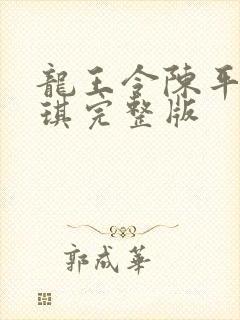 龍王令陳平
琪完整版
郭成華